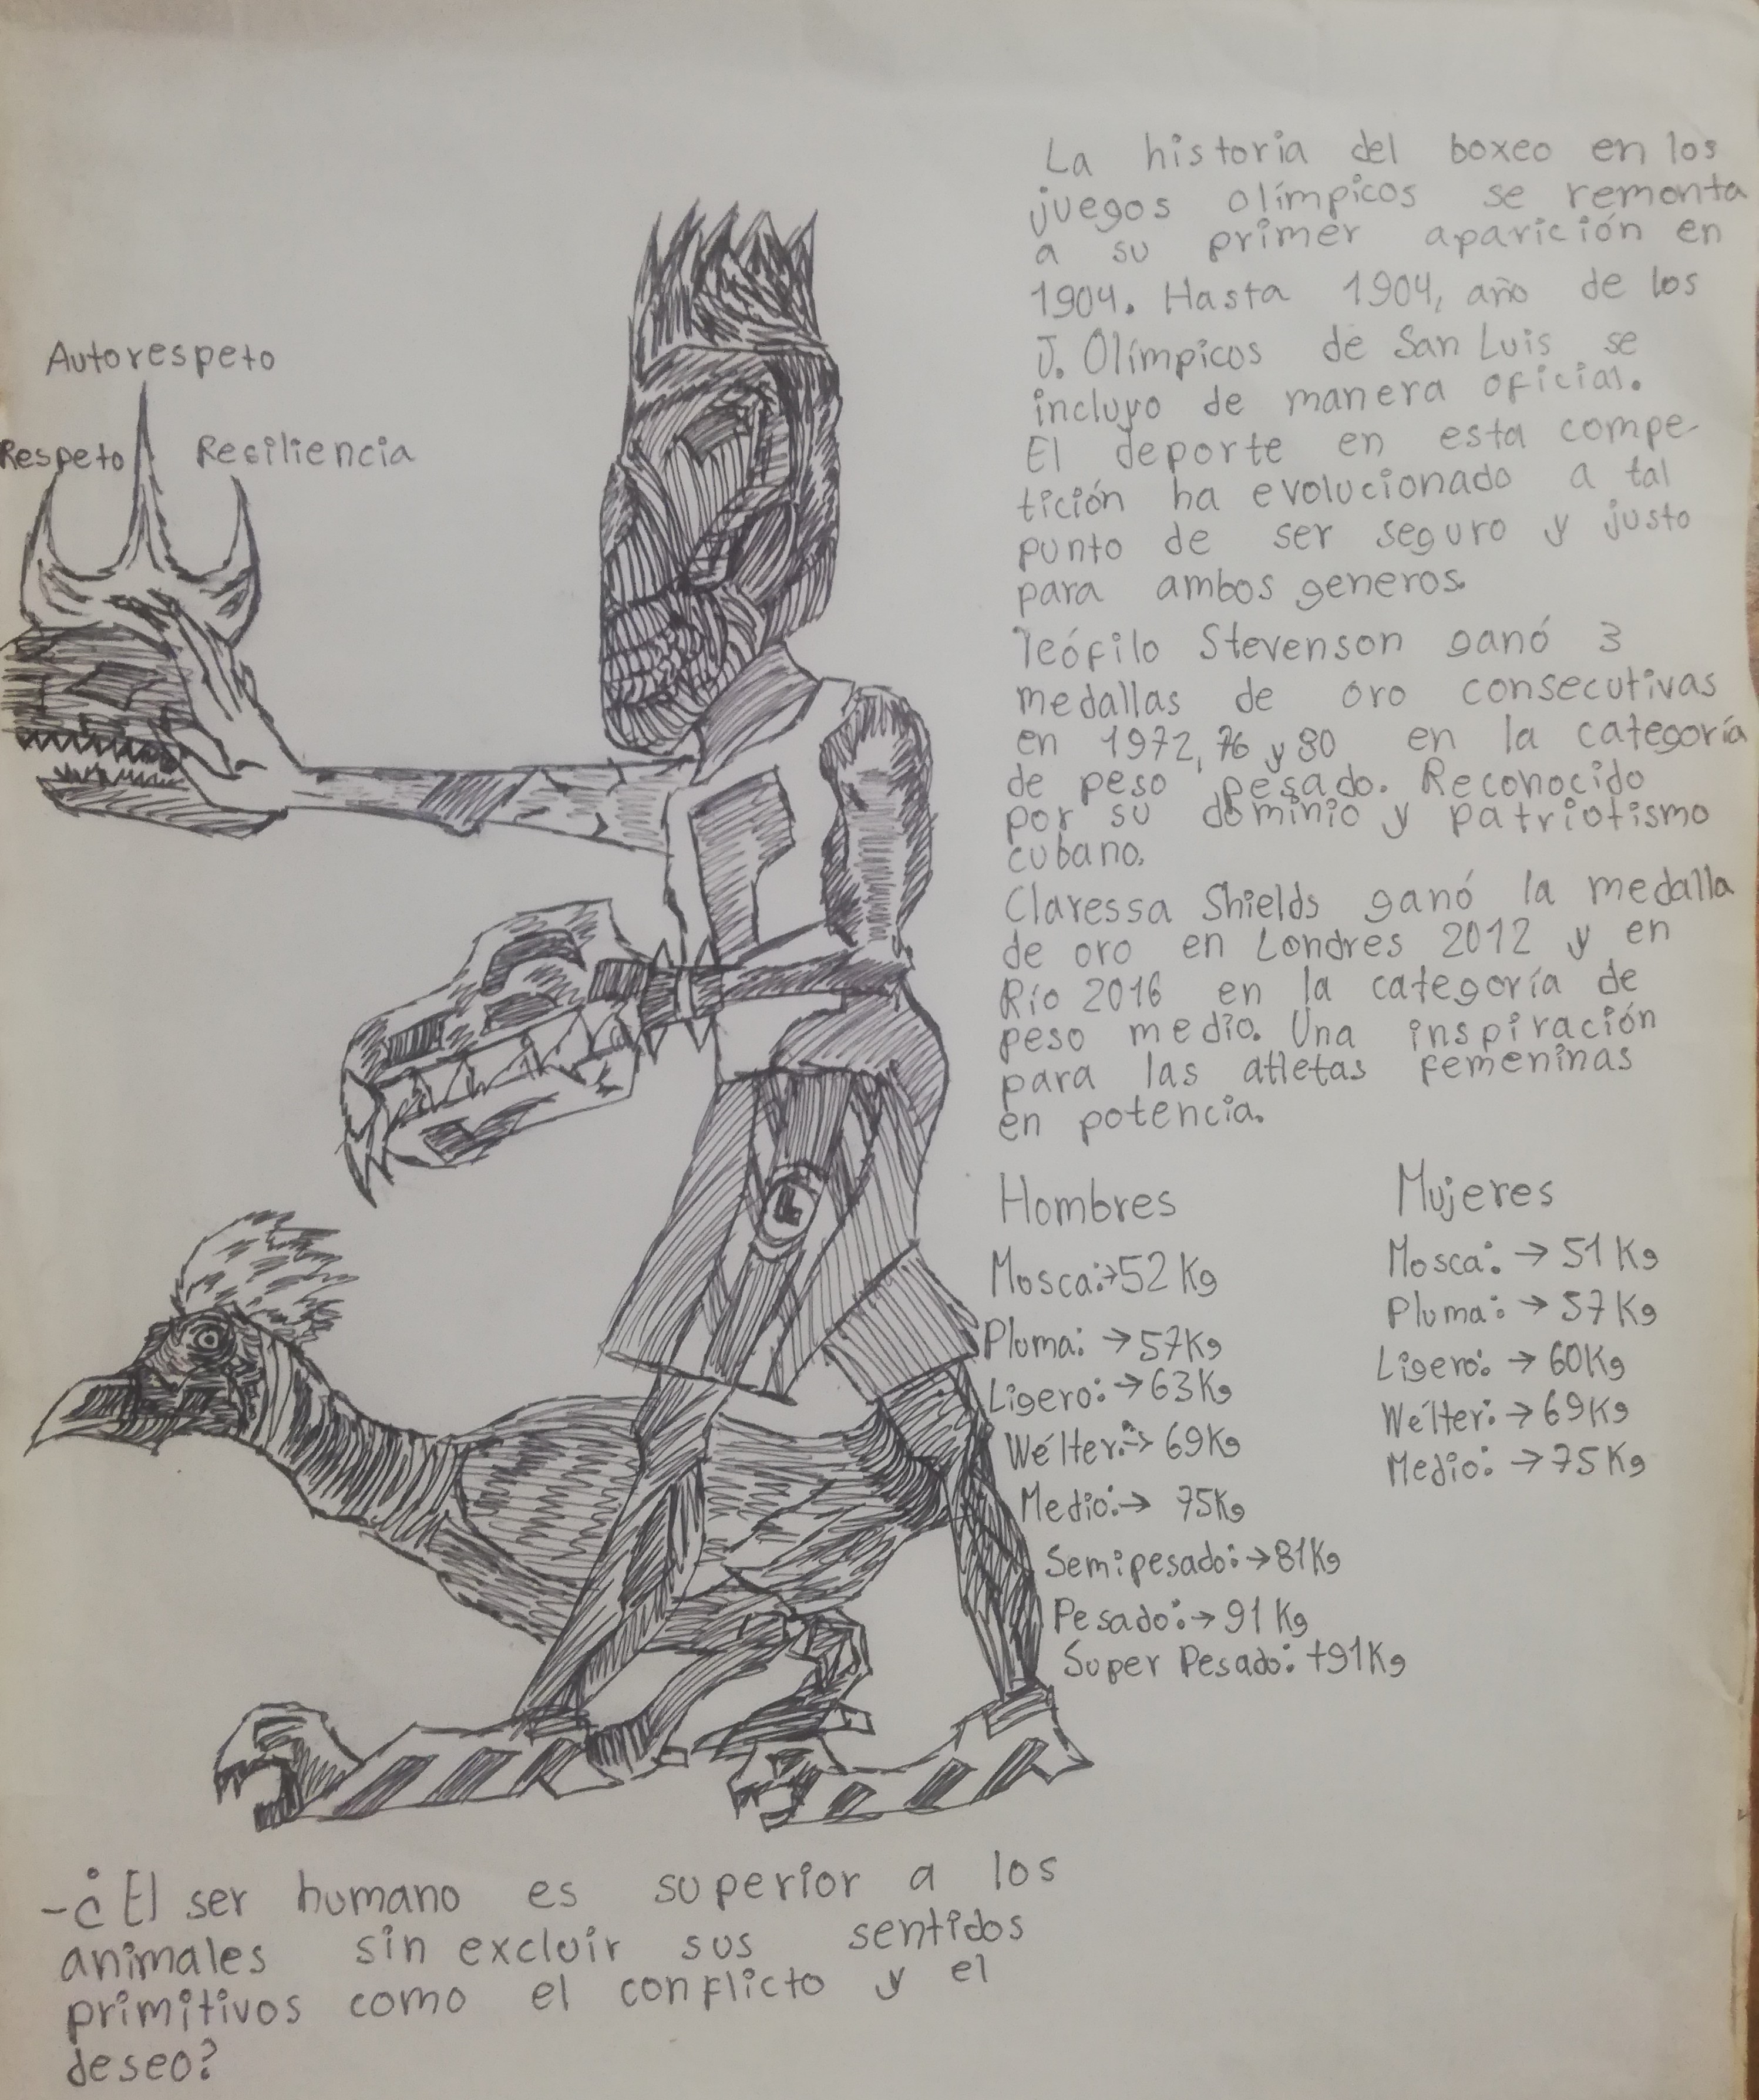 La historia del boxeo en los
juegos olímpicos se remonta
a su primer aparición en
1904. Hasta 1904, año de los
J. Olímpicos de San Luis se
incluyo de manera oficial.
El deporte en esta compe-
tición ha evolucionado a tal
punto de ser seguro y justo
para ambos generos.
Teófilo Stevenson ganó 3
medallas de oro consecutivas
en 1972, 76 y 80 en la categoría
de peso pesado. Reconocido
por su dominio y patriotismo
cubano.
Claressa Shields ganó la medalla
de oro en Londres 2012 y en
Río 2016 en la categoría de
peso medio. Una inspiración
para las atletas femeninas
en potencia.
Autorespeto
Respeto
Resiliencia
F
Hombres
Mosca:→52 Kg
Pluma: →57Kg
Ligero:→63Kg
Wélter:→ 69Kg
Medio:→ 75Kg
Semipesado:→81Kg
Pesado:→91 Kg
Super Pesado: +91Kg
Mujeres
Mosca: → 51 Kg
Pluma: → 57Kg
Ligero: → 60Kg
Wélter: → 69Kg
Medio: →75Kg
-¿El ser humano es superior a los
animales sin excluir sus sentidos
primitivos como el conflicto y el
deseo?